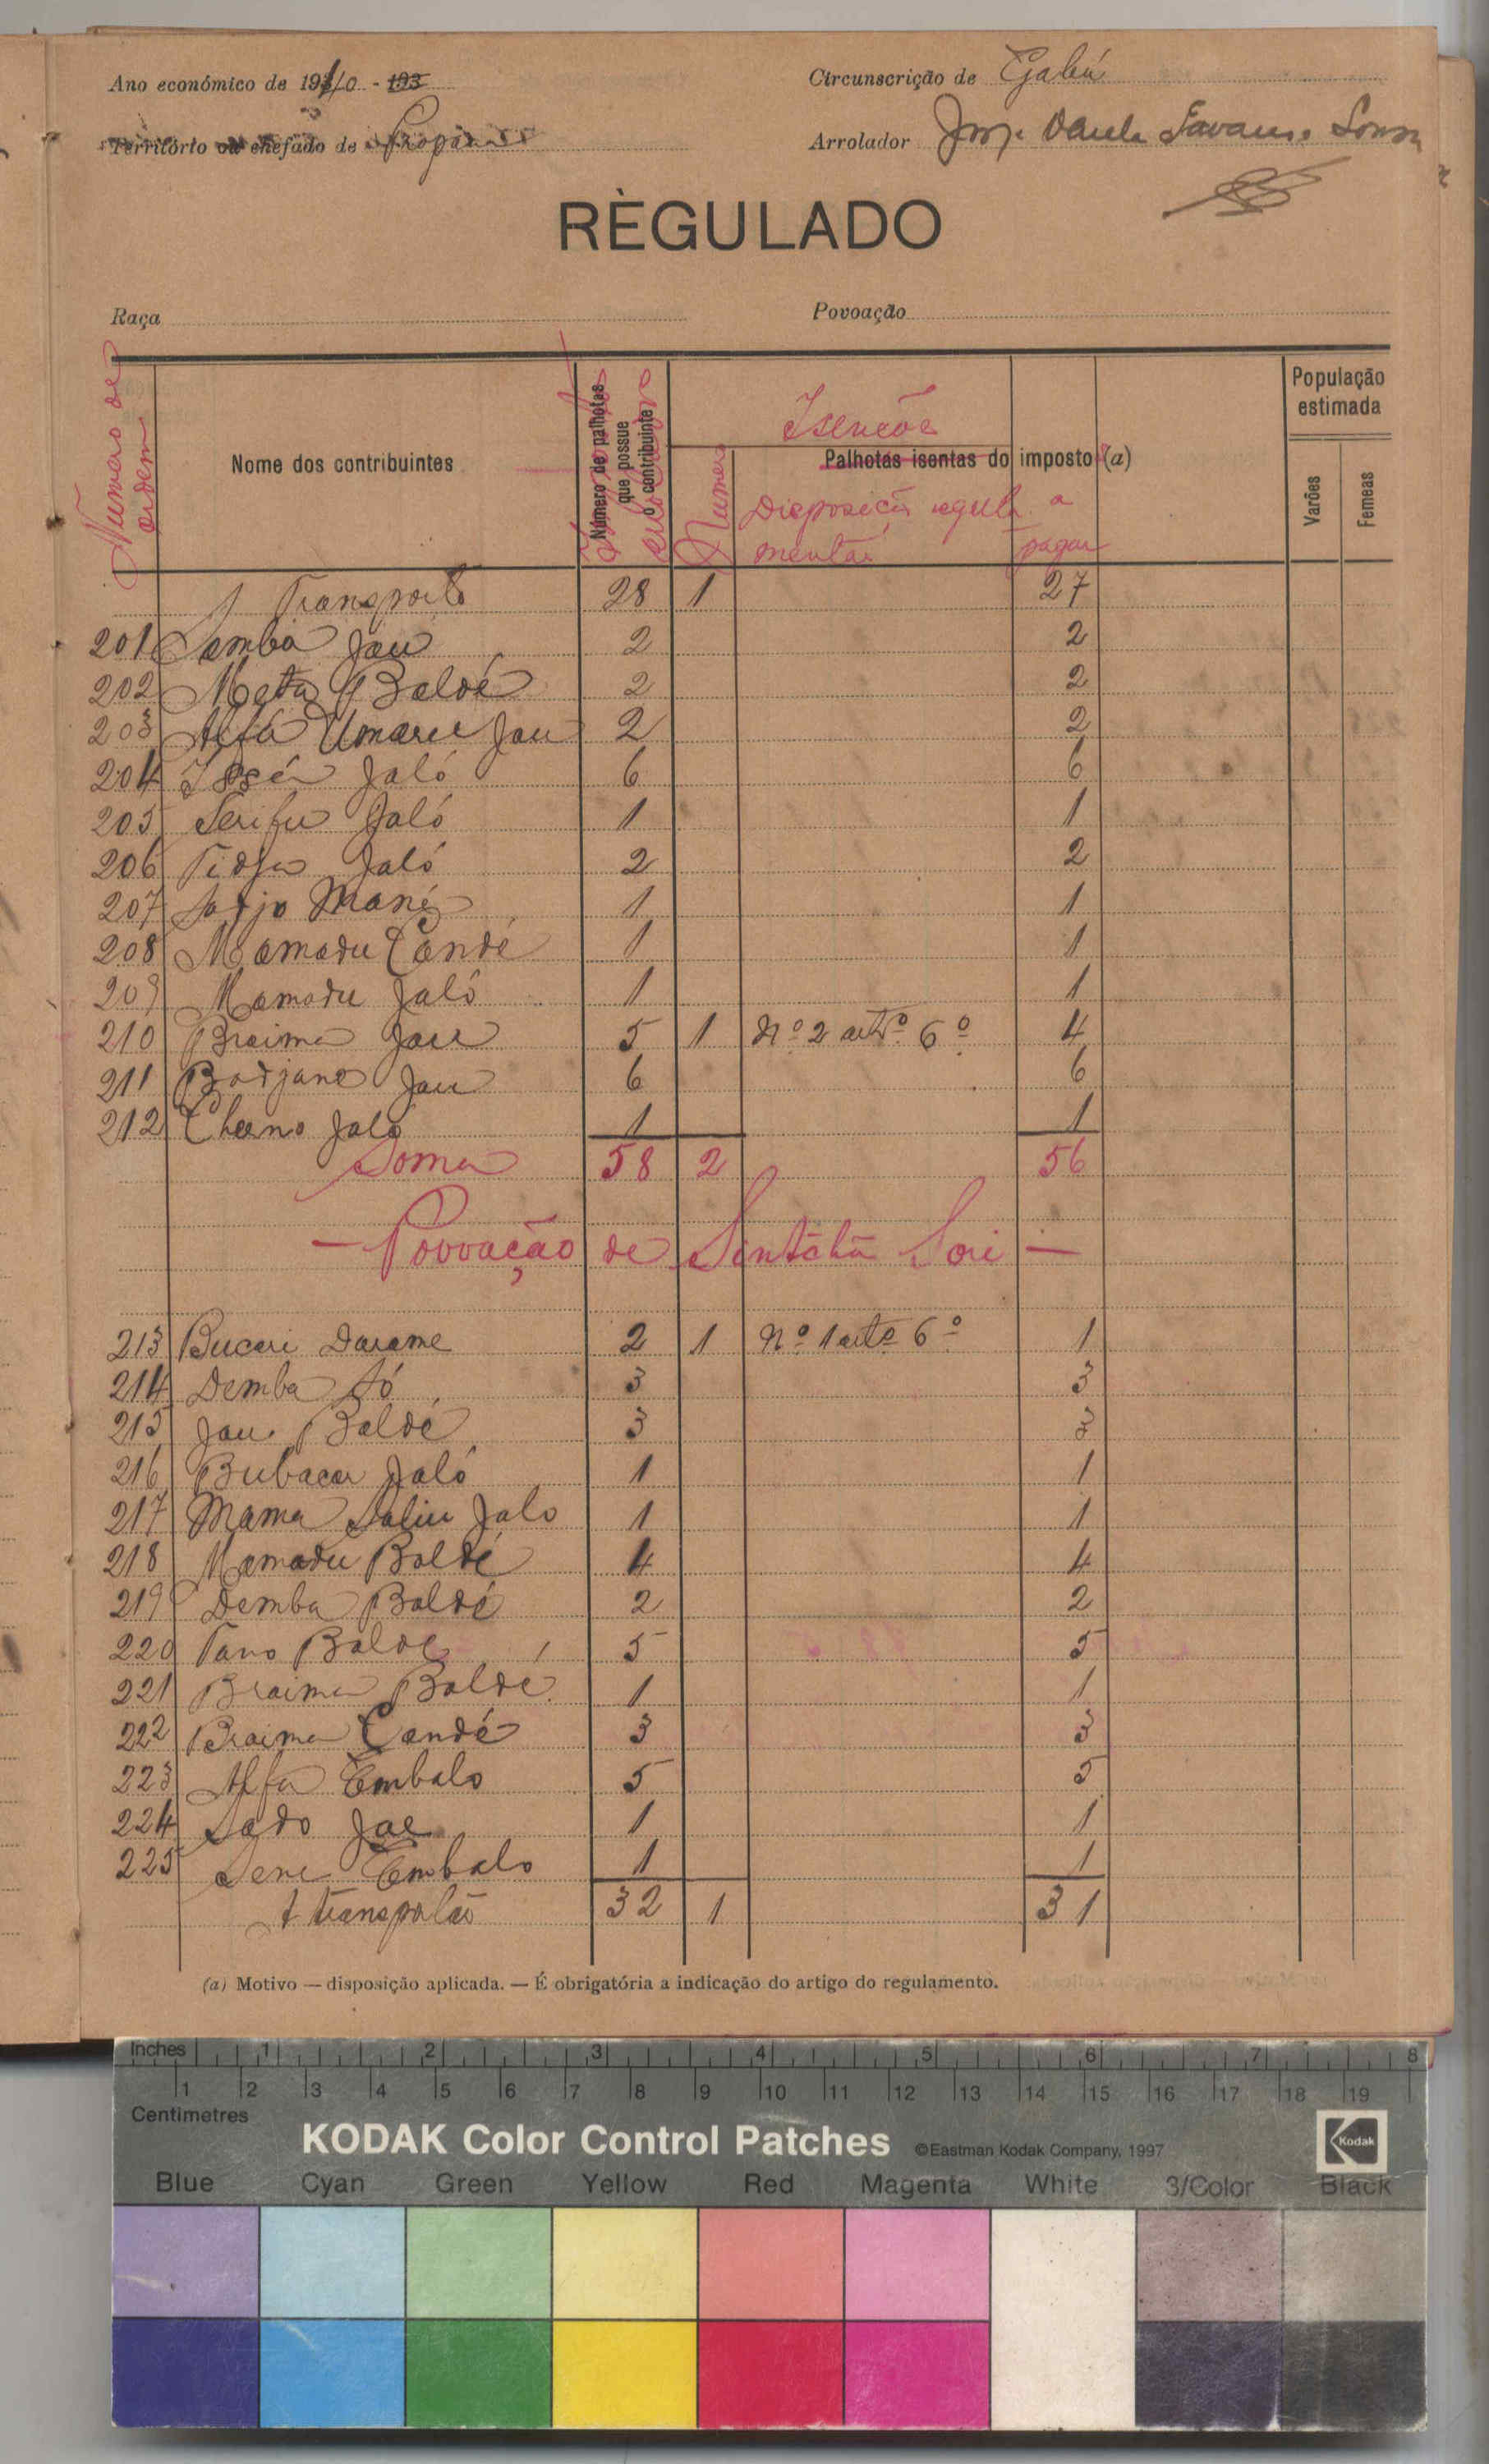 Ano económico de 1940 - 193
Circunscrição de Gabú
Território ou chefado de Propana
Arrolador
REGULADO
Raça
Povoação
Numero de ordem
Nome dos contribuintes
Número de palhotas que possue o contribuinte
Isenções
Palhotas isentas do imposto (a)
Numero
Disposição regulamentar
a pagar
População estimada
Varões
Femeas
Transporte 28 1 27
201 Samba Jau 2 2
202 Meta Baldé 2 2
203 Alfa Umaru Jau 2 2
204 Jaló 6 6
205 Serifu Jaló 1 1
206 Tidja Jaló 2 2
207 Sarjo Mané 1 1
208 Mamadu Candé 1 1
209 Mamadu Jaló 1 1
210 Braima Jau 5 1 Nº 2 artº 6º 4
211 Badjano Jau 6 6
212 Cherno Jaló 1 1
Soma 58 2 56
— Povoação de Sintchã Sori —
213 Bucari Darame 2 1 Nº 1 artº 6º 1
214 Demba Só 3 3
215 Jau Baldé 3 3
216 Bubacar Jaló 1 1
217 Mama Saliu Jalo 1 1
218 Mamadu Baldé 4 4
219 Demba Baldé 2 2
220 Tano Balde 5 5
221 Braima Baldé 1 1
222 Braima Candé 3 3
223 Alfa Embalo 5 5
224 Sado Jae 1 1
225 Sene Embalo 1 1
A transportar 32 1 31
(a) Motivo — disposição aplicada. — É obrigatória a indicação do artigo do regulamento.
Inches 1 2 3 4 5 6 7 8
1 2 3 4 5 6 7 8 9 10 11 12 13 14 15 16 17 18 19
Centimetres
KODAK Color Control Patches ©Eastman Kodak Company, 1997 Kodak
Blue Cyan Green Yellow Red Magenta White 3/Color Black